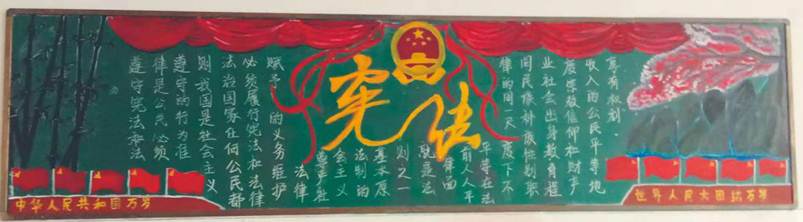 宪法
遵守宪法和法
律是公民必须
遵守的行为准
则我国是社会主义
法治国家任何公民都
必须履行宪法和法律
赋予的义务维护
法律
尊严社
会主义
法制的
基本原
则之一
就是法
律面
前人人平
平等在法
律的同一尺度下不
问民族种族性别职
业社会出身教育程
度宗教信仰和财产
收入的公民平等地
享有权利。
中华人民共和国万岁
世界人民大团结万岁